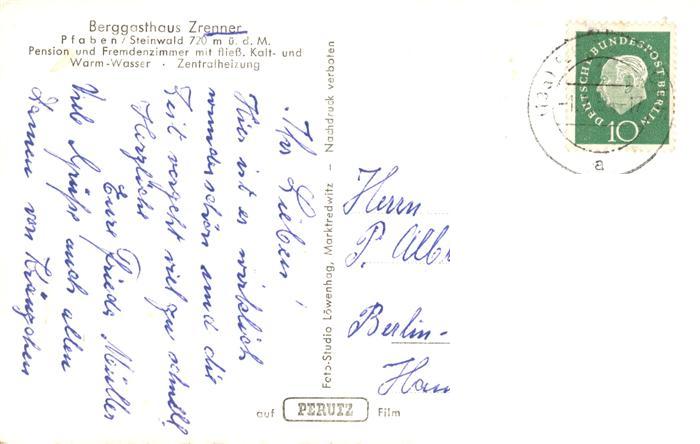 Berggasthaus Zrenner
Pfaben/Steinwald 720 m ü. d. M.
Pension und Fremdenzimmer mit fließ. Kalt- und
Warm-Wasser · Zentralheizung
Ihr Lieben!
Hier ist es wirklich
wunderschön und die
Zeit vergeht viel zu schnell.
Herzliche
Eure Frieda Müller
Viele Grüße auch allen
Damen von Kränzchen
Foto-Studio Löwenhag, Marktredwitz – Nachdruck verboten
auf PERUTZ Film
DEUTSCHE BUNDESPOST BERLIN
10
a
Herrn
P. Alb
Berlin-